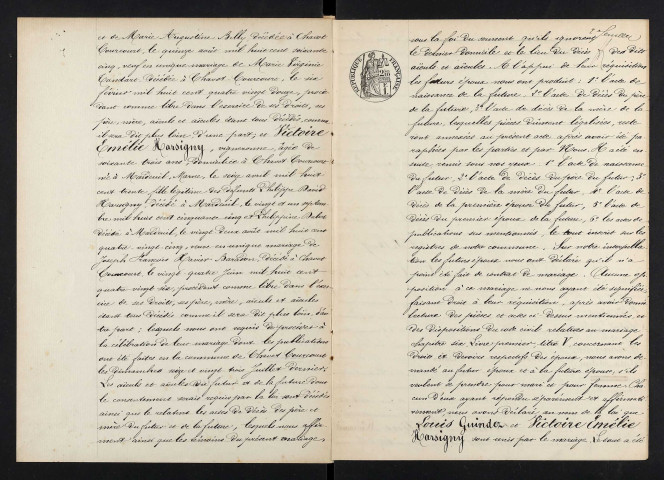 et de Marie Augustine Billy décédée à Chavot
Courcourt, le quinze août mil huit cent soixante
cinq, veuf en unique mariage de Marie Virginie
décédée à Chavot Courcourt, le six
février mil huit cent quatre vingt douze, procé
dant comme libre dans l'exercice de ses droits, ses
père, mère, aïeuls et aïeules étant tous décédés, comme
il sera dit plus loin d'une part; et Victoire
Emélie Harsigny, vigneronne, âgée de
soixante trois ans, domiciliée à Chavot Courcourt
née à Mardeuil, Marne, le sept avril mil huit
cent trente, fille légitime des défunts Philippe David
Harsigny, décédé à Mardeuil, le vingt et un
mil huit cent cinquante cinq et
décédée à Mardeuil, le vingt deux août mil huit cent
quatre vingt cinq, veuve en unique mariage de
Joseph François Xavier décédé à Chavot
Courcourt, le vingt quatre juin mil huit cent
quatre vingt six, procédant comme libre dans l'exer
cice de ses droits, ses père, mère, aïeuls et aïeules
étant tous décédés comme il sera dit plus loin, d'au
tre part; lesquels nous ont requis de procéder à
la célébration de leur mariage dont les publications
ont été faites en la commune de Chavot Courcourt
les dimanches seize et vingt trois juillet derniers.
Les aïeuls et aïeules du futur et de la future dont
le consentement serait requis par la loi sont décédés
ainsi que le relatent les actes de décès des père et
mère du futur et de la future, lesquels nous affir
ment ainsi que les témoins du présent mariage,
sous la foi du serment qu'ils ignorent
le dernier domicile et le lieu du décès des dits
aïeuls et aïeules. A l'appui de leur réquisition
les futurs époux nous ont produit: 1° l'acte de
naissance de la future. 2° l'acte de décès du père
de la future, 3° l'acte de décès de la mère de la
future, lesquelles pièces dûment légalisées, reste
ront annexées au présent acte après avoir été pa
raphées par les parties et par Nous. Il a été en
suite remis sous nos yeux: 1° l'acte de naissance
du futur, 2° l'acte de décès du père du futur; 3°
l'acte de décès de la mère du futur, 4° l'acte de
décès de la première épouse du futur, 5° l'acte de
décès du premier époux de la future, 6° les actes de
publications sus mentionnés, le tout inscrit sur les
registres de notre commune. Sur notre interpella
tion les futurs époux nous ont déclaré qu'il n'a
point été fait de contrat de mariage. Aucune op
position à ce mariage ne nous ayant été signifiée,
faisant droit à leur réquisition, après avoir donné
lecture des pièces et actes ci-dessus mentionnés et
des dispositions du code civil relatives au mariage
chapitre six Livre premier, titre V concernant les
droits et devoirs respectifs des époux, nous avons de
mandé au futur époux et à la future épouse, s'ils
veulent se prendre pour mari et pour femme. Cha
cun d'eux ayant répondu séparément et affirmati
vement nous avons déclaré au nom de la loi que
Louis Guindez et Victoire Emélie
Harsigny sont unis par le mariage. Le tout a été
RÉPUBLIQUE FRANÇAISE